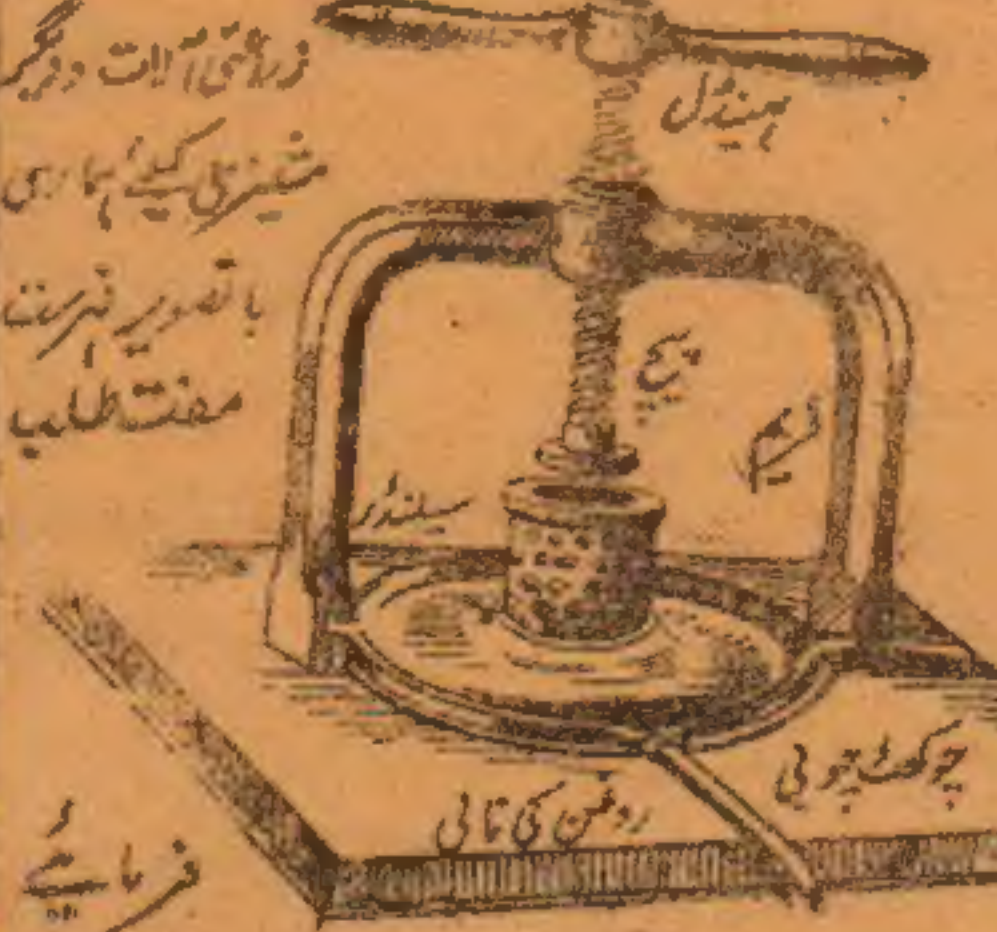 زراعتی آلات و دیگر
مشینری کیلئے ہماری
باتصویر فہرست
مفت طلب
فرمائیے
ہینڈل
پیچ
فریم
سیلنڈر
چوکھٹ چوبی
روغن کی نالی